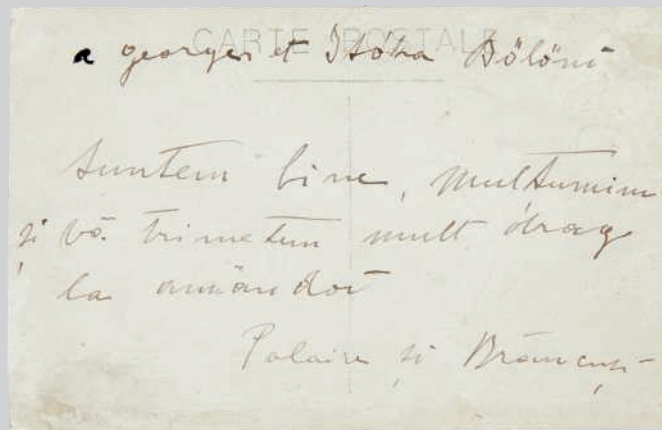 CARTE POSTALE
a georges et Itóka Bölöni
suntem bine, mulțumim
și vă trimetem mult drag
la amândoi
Polaire și Brâncuși